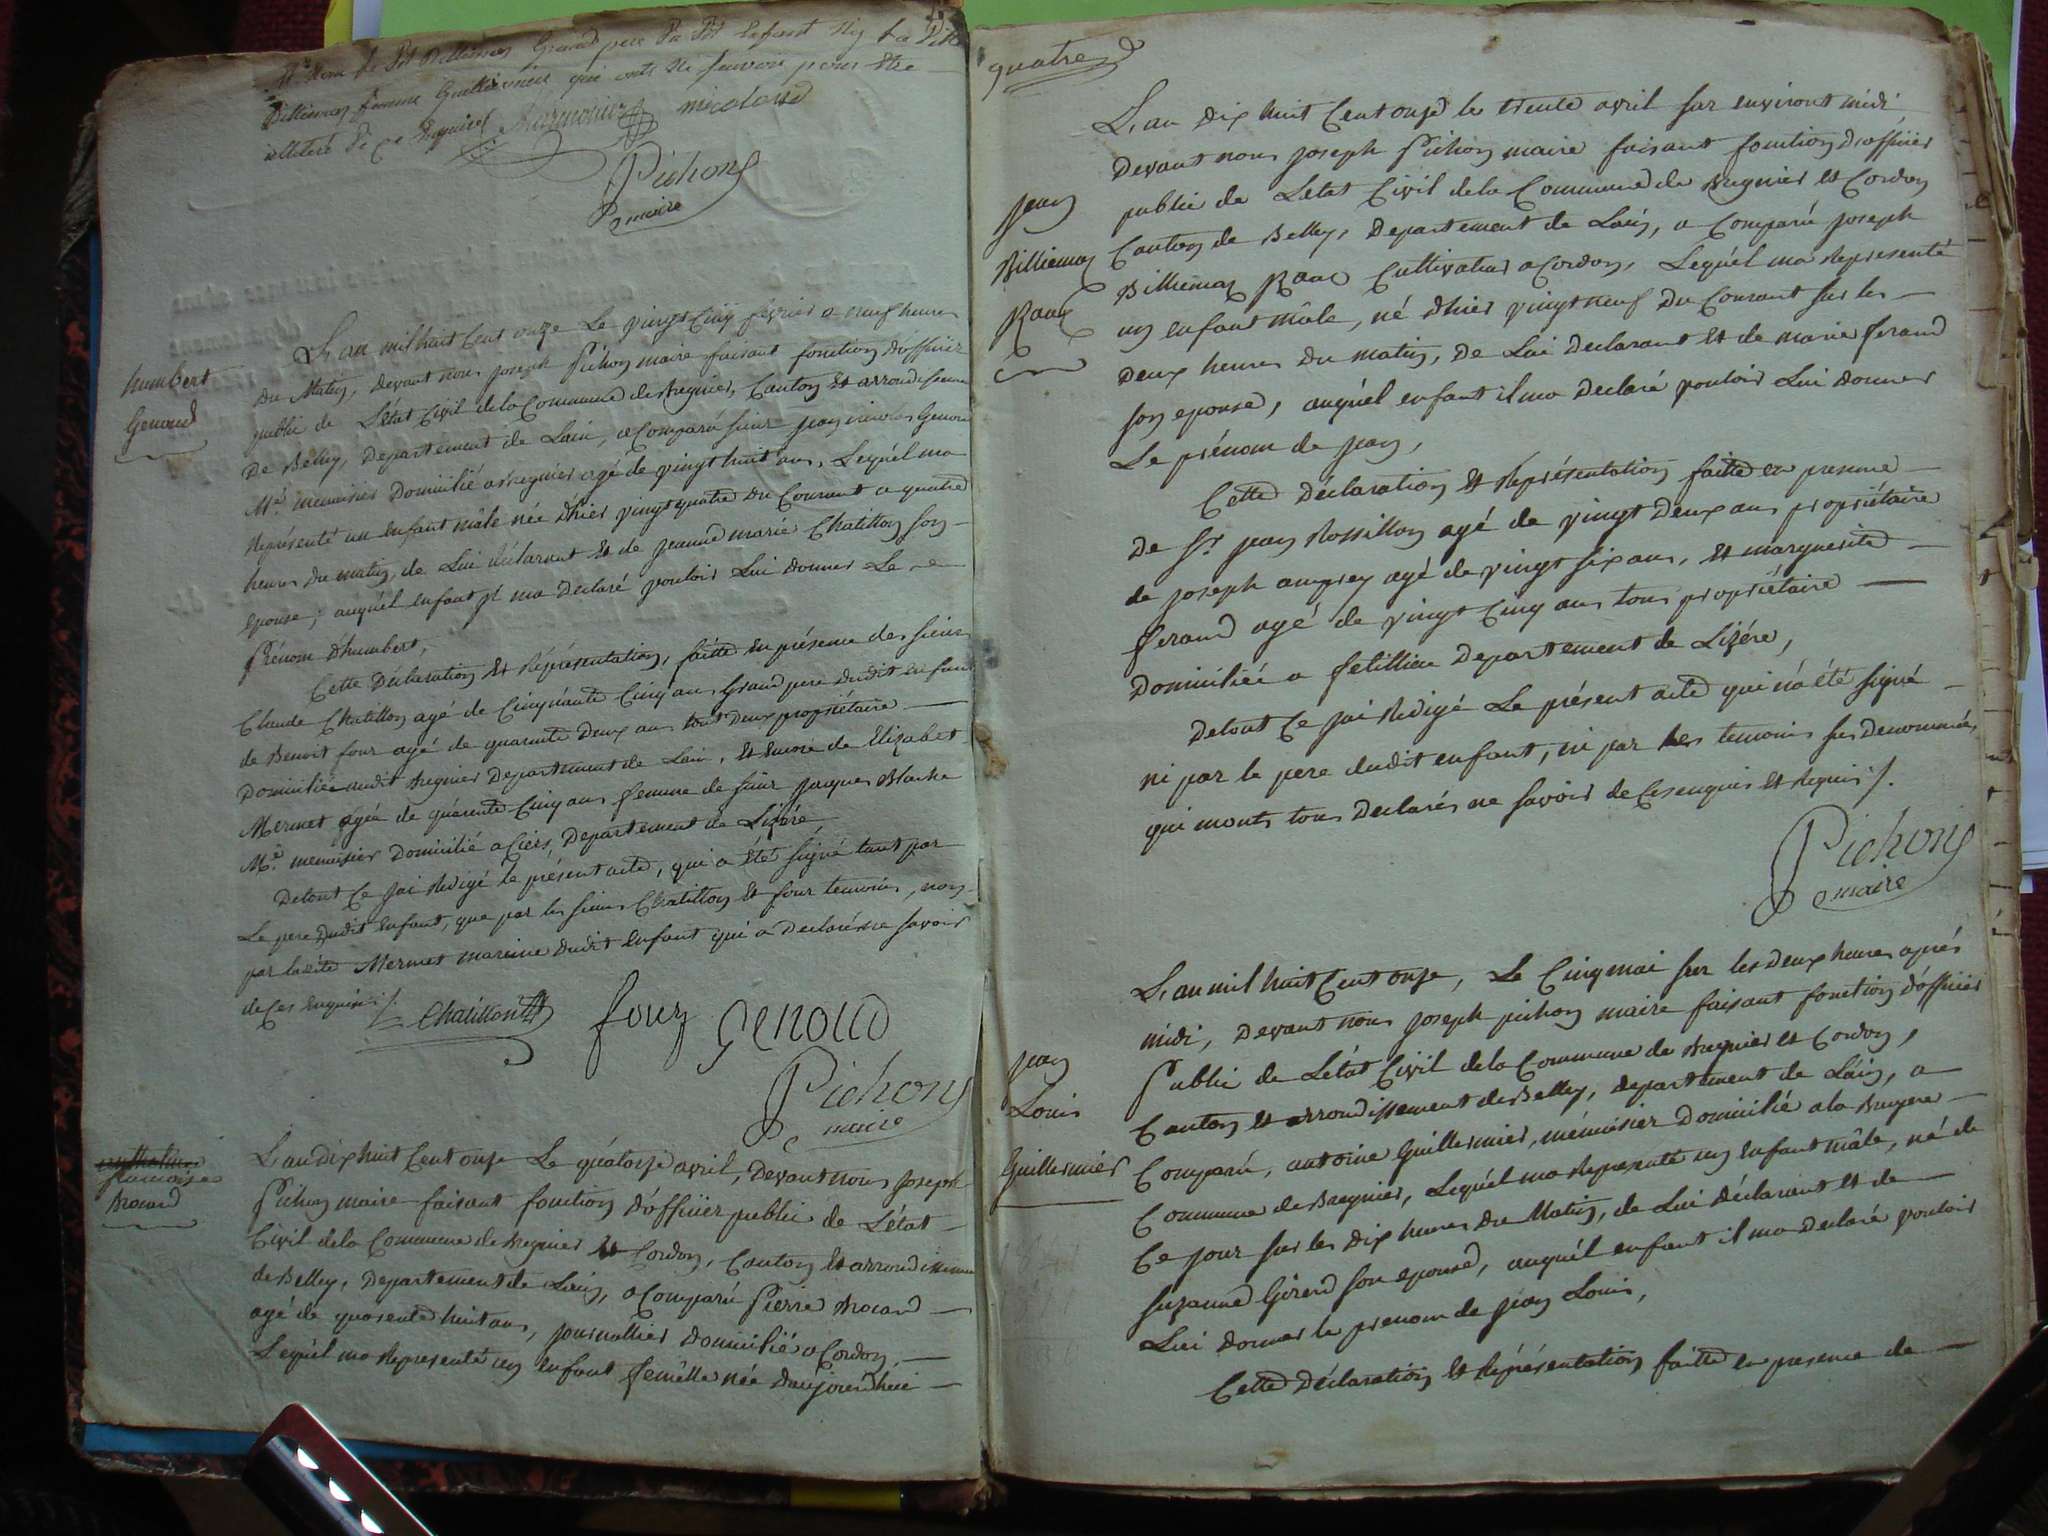 Billiemaz femme Guillermier qui onts
Marmonier nicoloud
Pichon
maire
humbert
Genoud
L'an mil huit Cent onze Le vingt Cinq fevrier a neuf heures
du Matin, devant nous joseph Pichon maire faisant fonction d'officier
public de L'état Civil de la Commune de Bregnier, Canton Et arrondissement
De Belley, Departement de Lain, a Comparü sieur jean nicolas Genoud
Me. menuisier Domicilié a Bregnier agé de vingt huit ans, Lequél ma
Représenté un enfant mâle née D'hier vingt quatre du Courant a quatre
heures Du matin, de Lui Déclarant Et de jeanne marie Chatillon son
Epouse, auquél enfant jl ma Déclaré vouloir Lui donner Le
Prénom D'humbert,
Cette Déclaration Et Réprésentation, faitte En présence des sieurs
Claude Chatillon agé de Cinquante Cinq ans Grand pere dudit enfant
de Benoit four agé de quarente Deux ans tout Deux propriétaire
Domiciliée audit Bregnier Departement de Lain, Et Encore de Elizabet
Mermet agée de quarente Cinq ans femme de sieur jacques Blache
Me. menuisier Domicilié a Ciers, Departement de Lizére
Detout Ce jai Redigé le présent acte, qui a été signé tant par
Le pere Dudit Enfant, que par les sieurs Chatillon Et four temoins, non
par ladite Mermet mareine dudit Enfant qui a Declaré ne savoir
de Ces Enquise ./.
Chatillon four Genoud
Pichon
maire
francoise
Brocard
L'an dix huit Cent onze Le quatorze avril, Devant nous joseph
Pichon maire faisant fonction D'officier public de L'état
Civil de la Commune de Bregnier Et Cordon, Canton Et arrondissement
de Belley, Departement de Lain, a Comparü Pierre Brocard
agé de quarente huit ans, journallier Domicilié a Cordon,
Lequél ma Represénté un enfant femélle née D'aujourd'hui
quatre
L'an dix huit Cent onze le trente avril sur environt midi
Devant nous joseph Pichon maire faisant fonction D'officier
public de L'état Civil de la Commune de Bregnier Et Cordon
Canton de Belley, Departement de Lain, a Comparü joseph
jean
Billiemaz
Roux
Billiemaz Roux Cultivateur a Cordon, Lequél ma Represénté
un enfant mâle, né d'hier vingt neuf Du Courant sur les
Deux heures Du matin, De Lui Declarant Et de marie ferand
son epouse, auquél enfant il ma Déclaré vouloir Lui donner
Le prénom de jean,
Cette Déclaration Et Représentation faitte en presence
De Sr. jean Rossillon agé de vingt Deux ans propriétaire
de joseph anprey agé de vingt six ans, Et marguerite
ferand agé de vingt Cinq ans tous propriétaire
Domiciliée a fetillieu Departement de Lizére,
Detout Ce jai Redigé Le présent acte qui n'a été signé
ni par le pere dudit enfant, ni par les temoins sus Denommées
qui monts tous Declarés ne savoir de Ces enquis Et Requis ./.
Pichon
maire
L'an mil huit Cent onze, Le Cinq mai sur les deux heures aprés
midi, Devant nous joseph pichon maire faisant fonction D'officier
Public de L'état Civil de la Commune de Bregnier Et Cordon,
Canton Et arrondissement de Belley, Departement de Lain, a
jean
Louis
Guillermier
Comparü, antoine Guillermier, ménuisier Domicilié a la Bruyere
Commune de Bregnier, Lequél ma Represénté un Enfant mâle, né de
Ce jour sur les dix heures Du Matin, de Lui Déclarant Et de
suzanne Girerd son epouse, auquél enfant il ma Declaré vouloir
Lui donner le prenom de jean Louis,
Cette Déclaration Et Réprésentation faitte en presence de